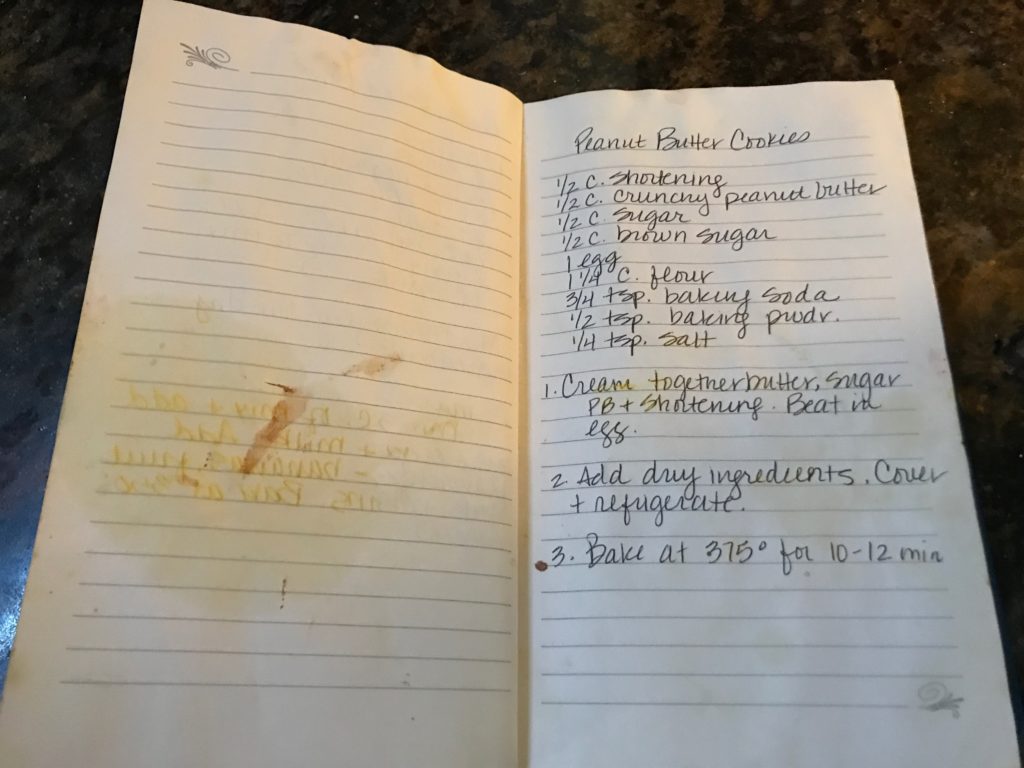 Peanut Butter Cookies
1/2 c. shortening
1/2 c. crunchy peanut butter
1/2 c. sugar
1/2 c. brown sugar
1 egg
1 1/4 c. flour
3/4 tsp. baking soda
1/2 tsp. baking pwdr.
1/4 tsp. salt
1. Cream together butter, sugar
PB + shortening. Beat in
egg.
2. Add dry ingredients. Cover
+ refrigerate.
3. Bake at 375° for 10-12 min